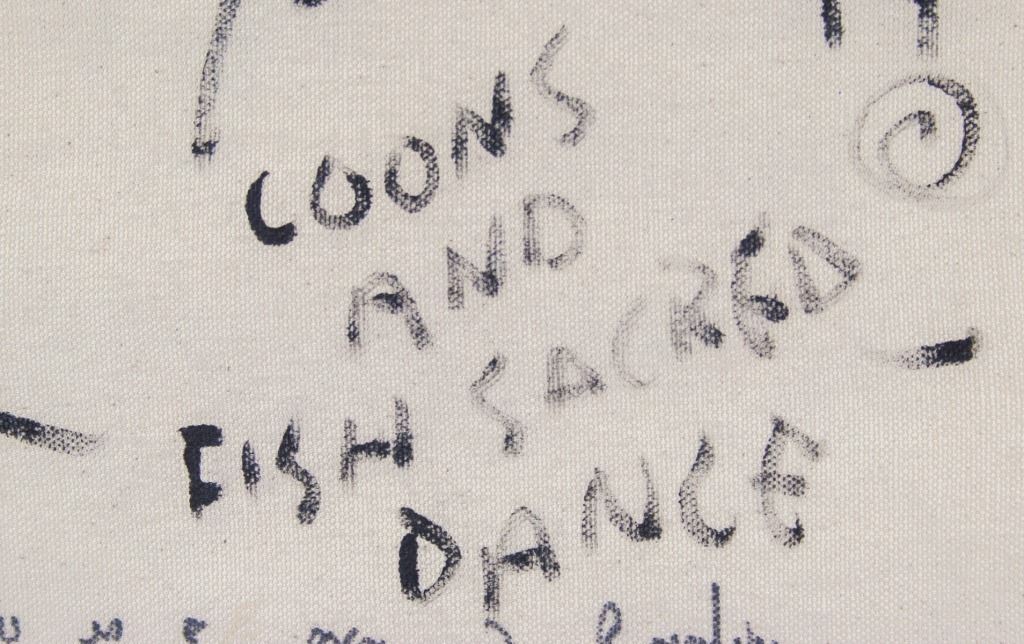 COONS
AND
FISH SACRED
DANCE